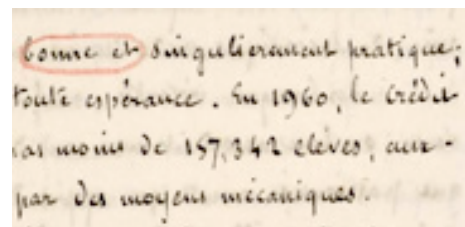 bonne et singulièrement pratique,
toute espérance. En 1960, le Crédit
pas moins de 157,342 élèves, aux-
par des moyens mécaniques.